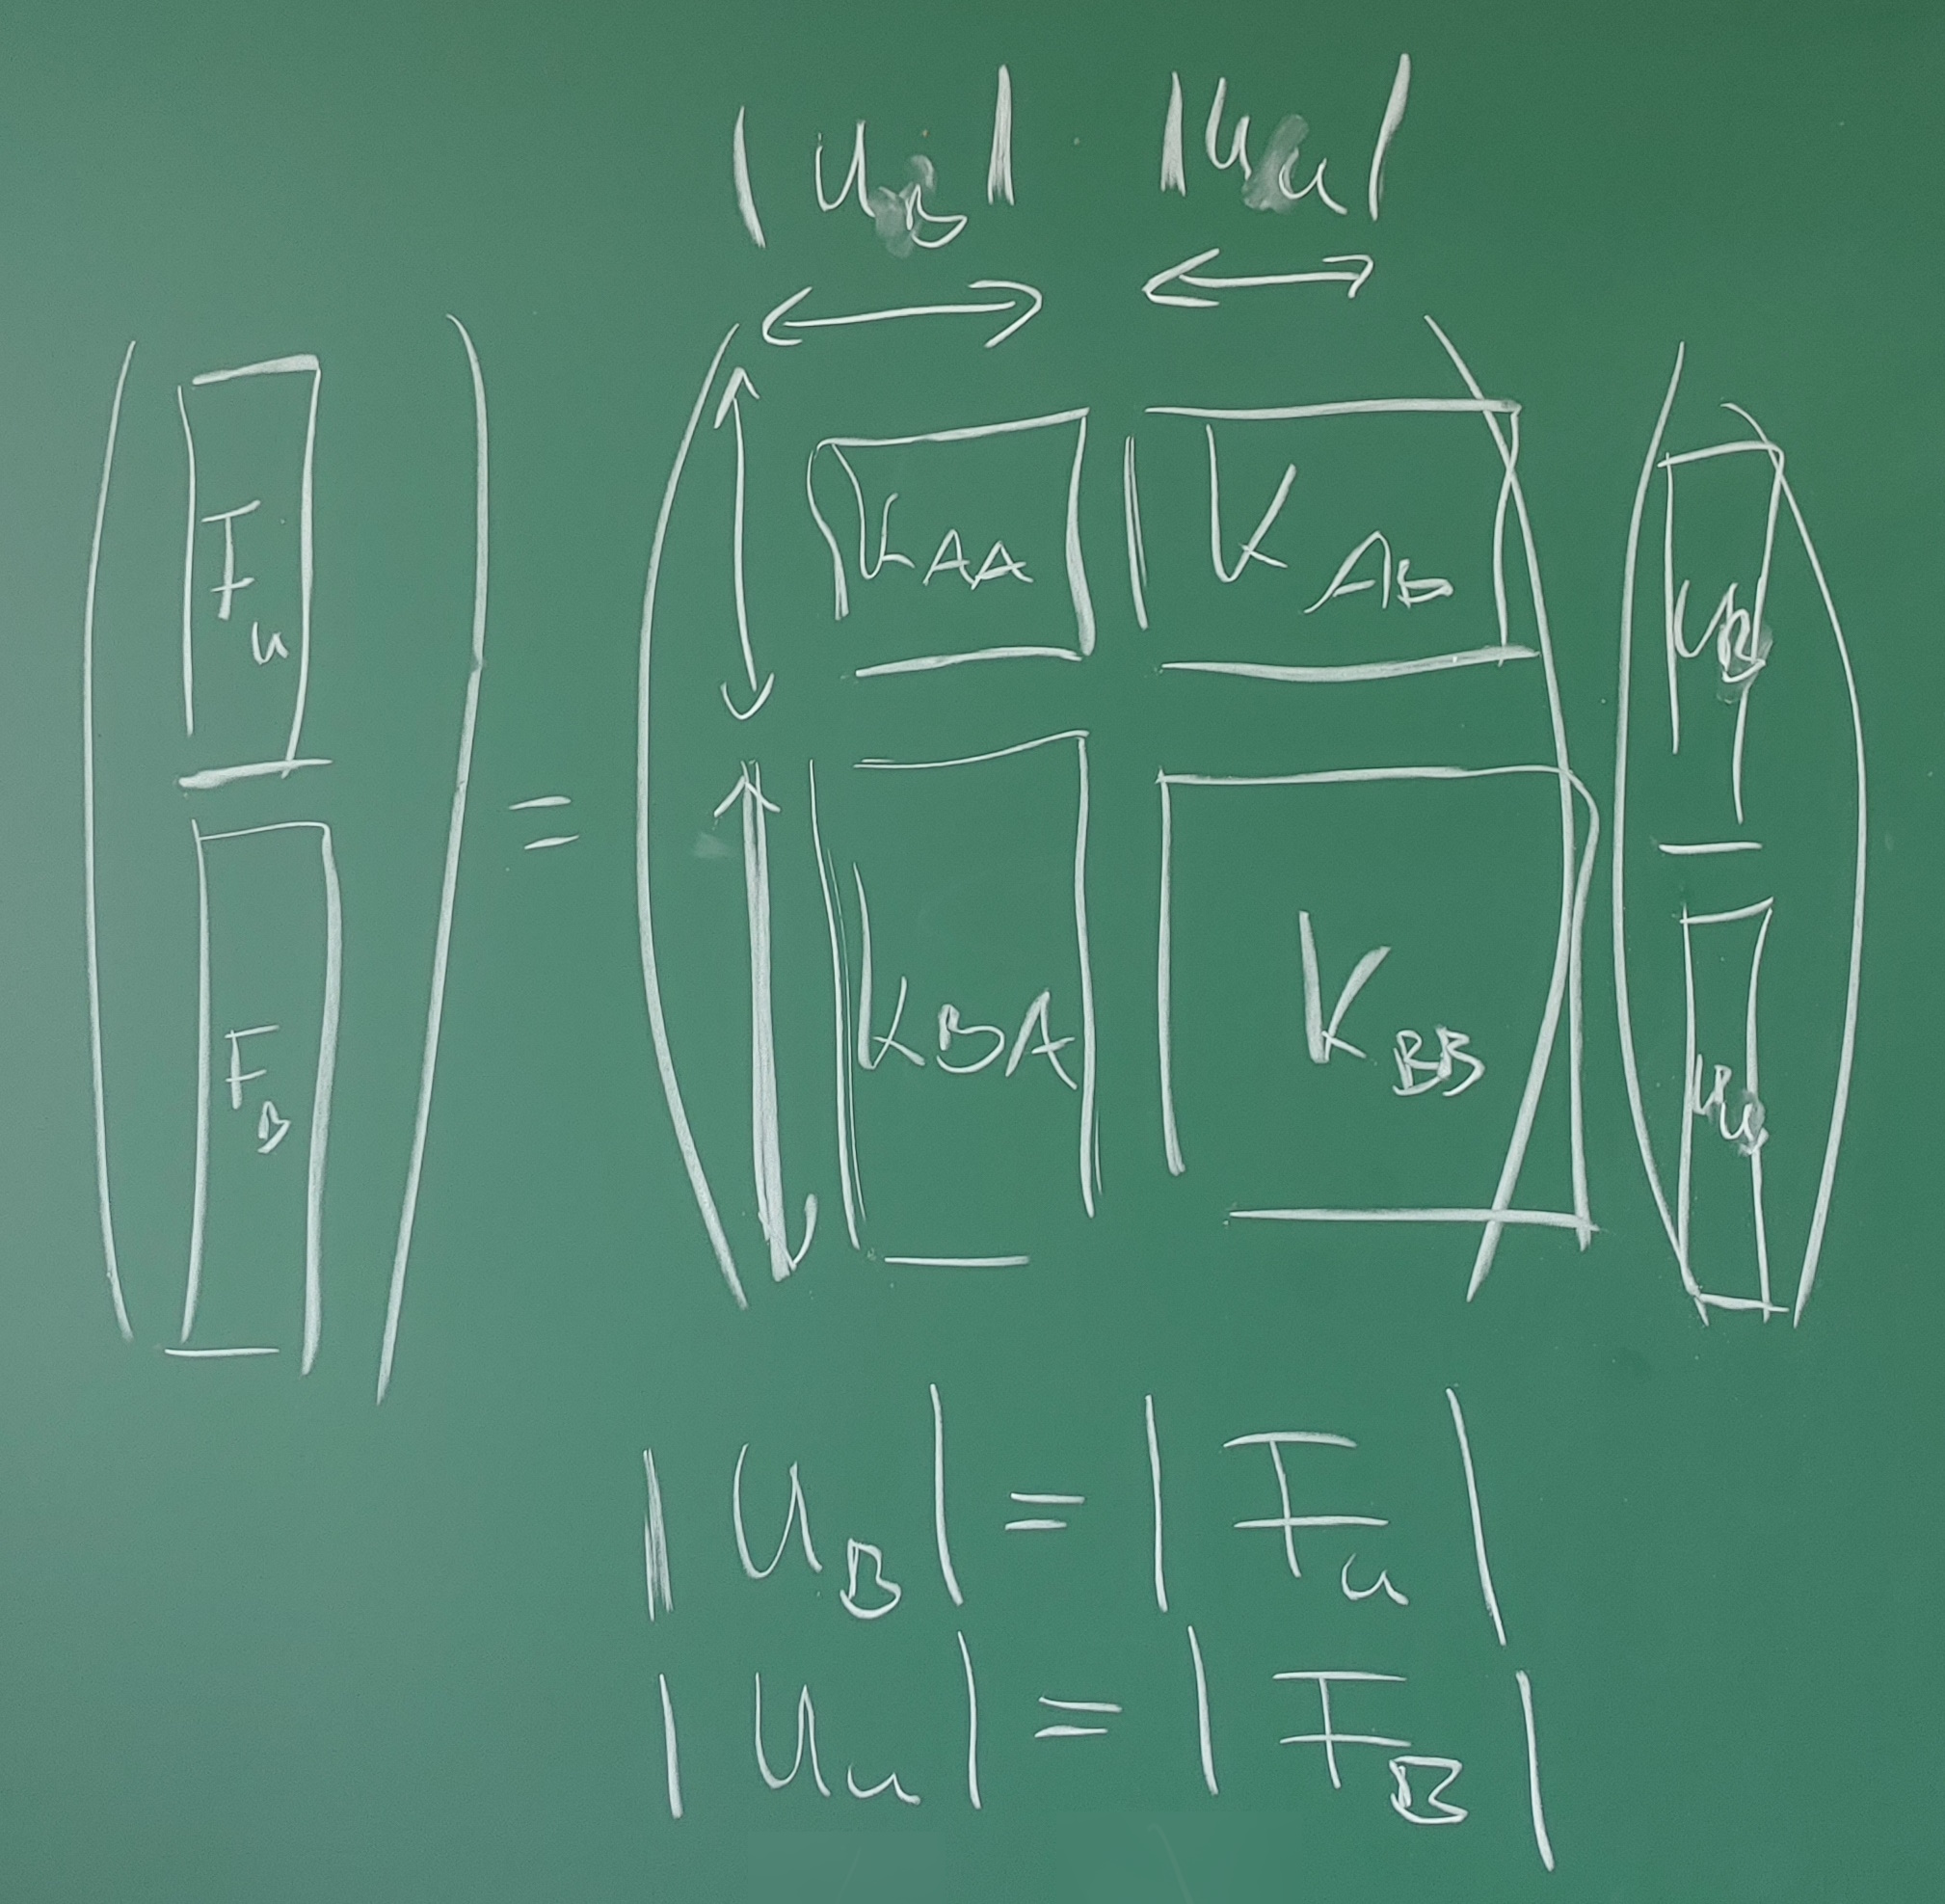 |u_B| |u_u|
(F_u F_B) = (K_AA K_AB K_BA K_BB) (u_B u_u)
|u_B| = |F_u|
|u_u| = |F_B|